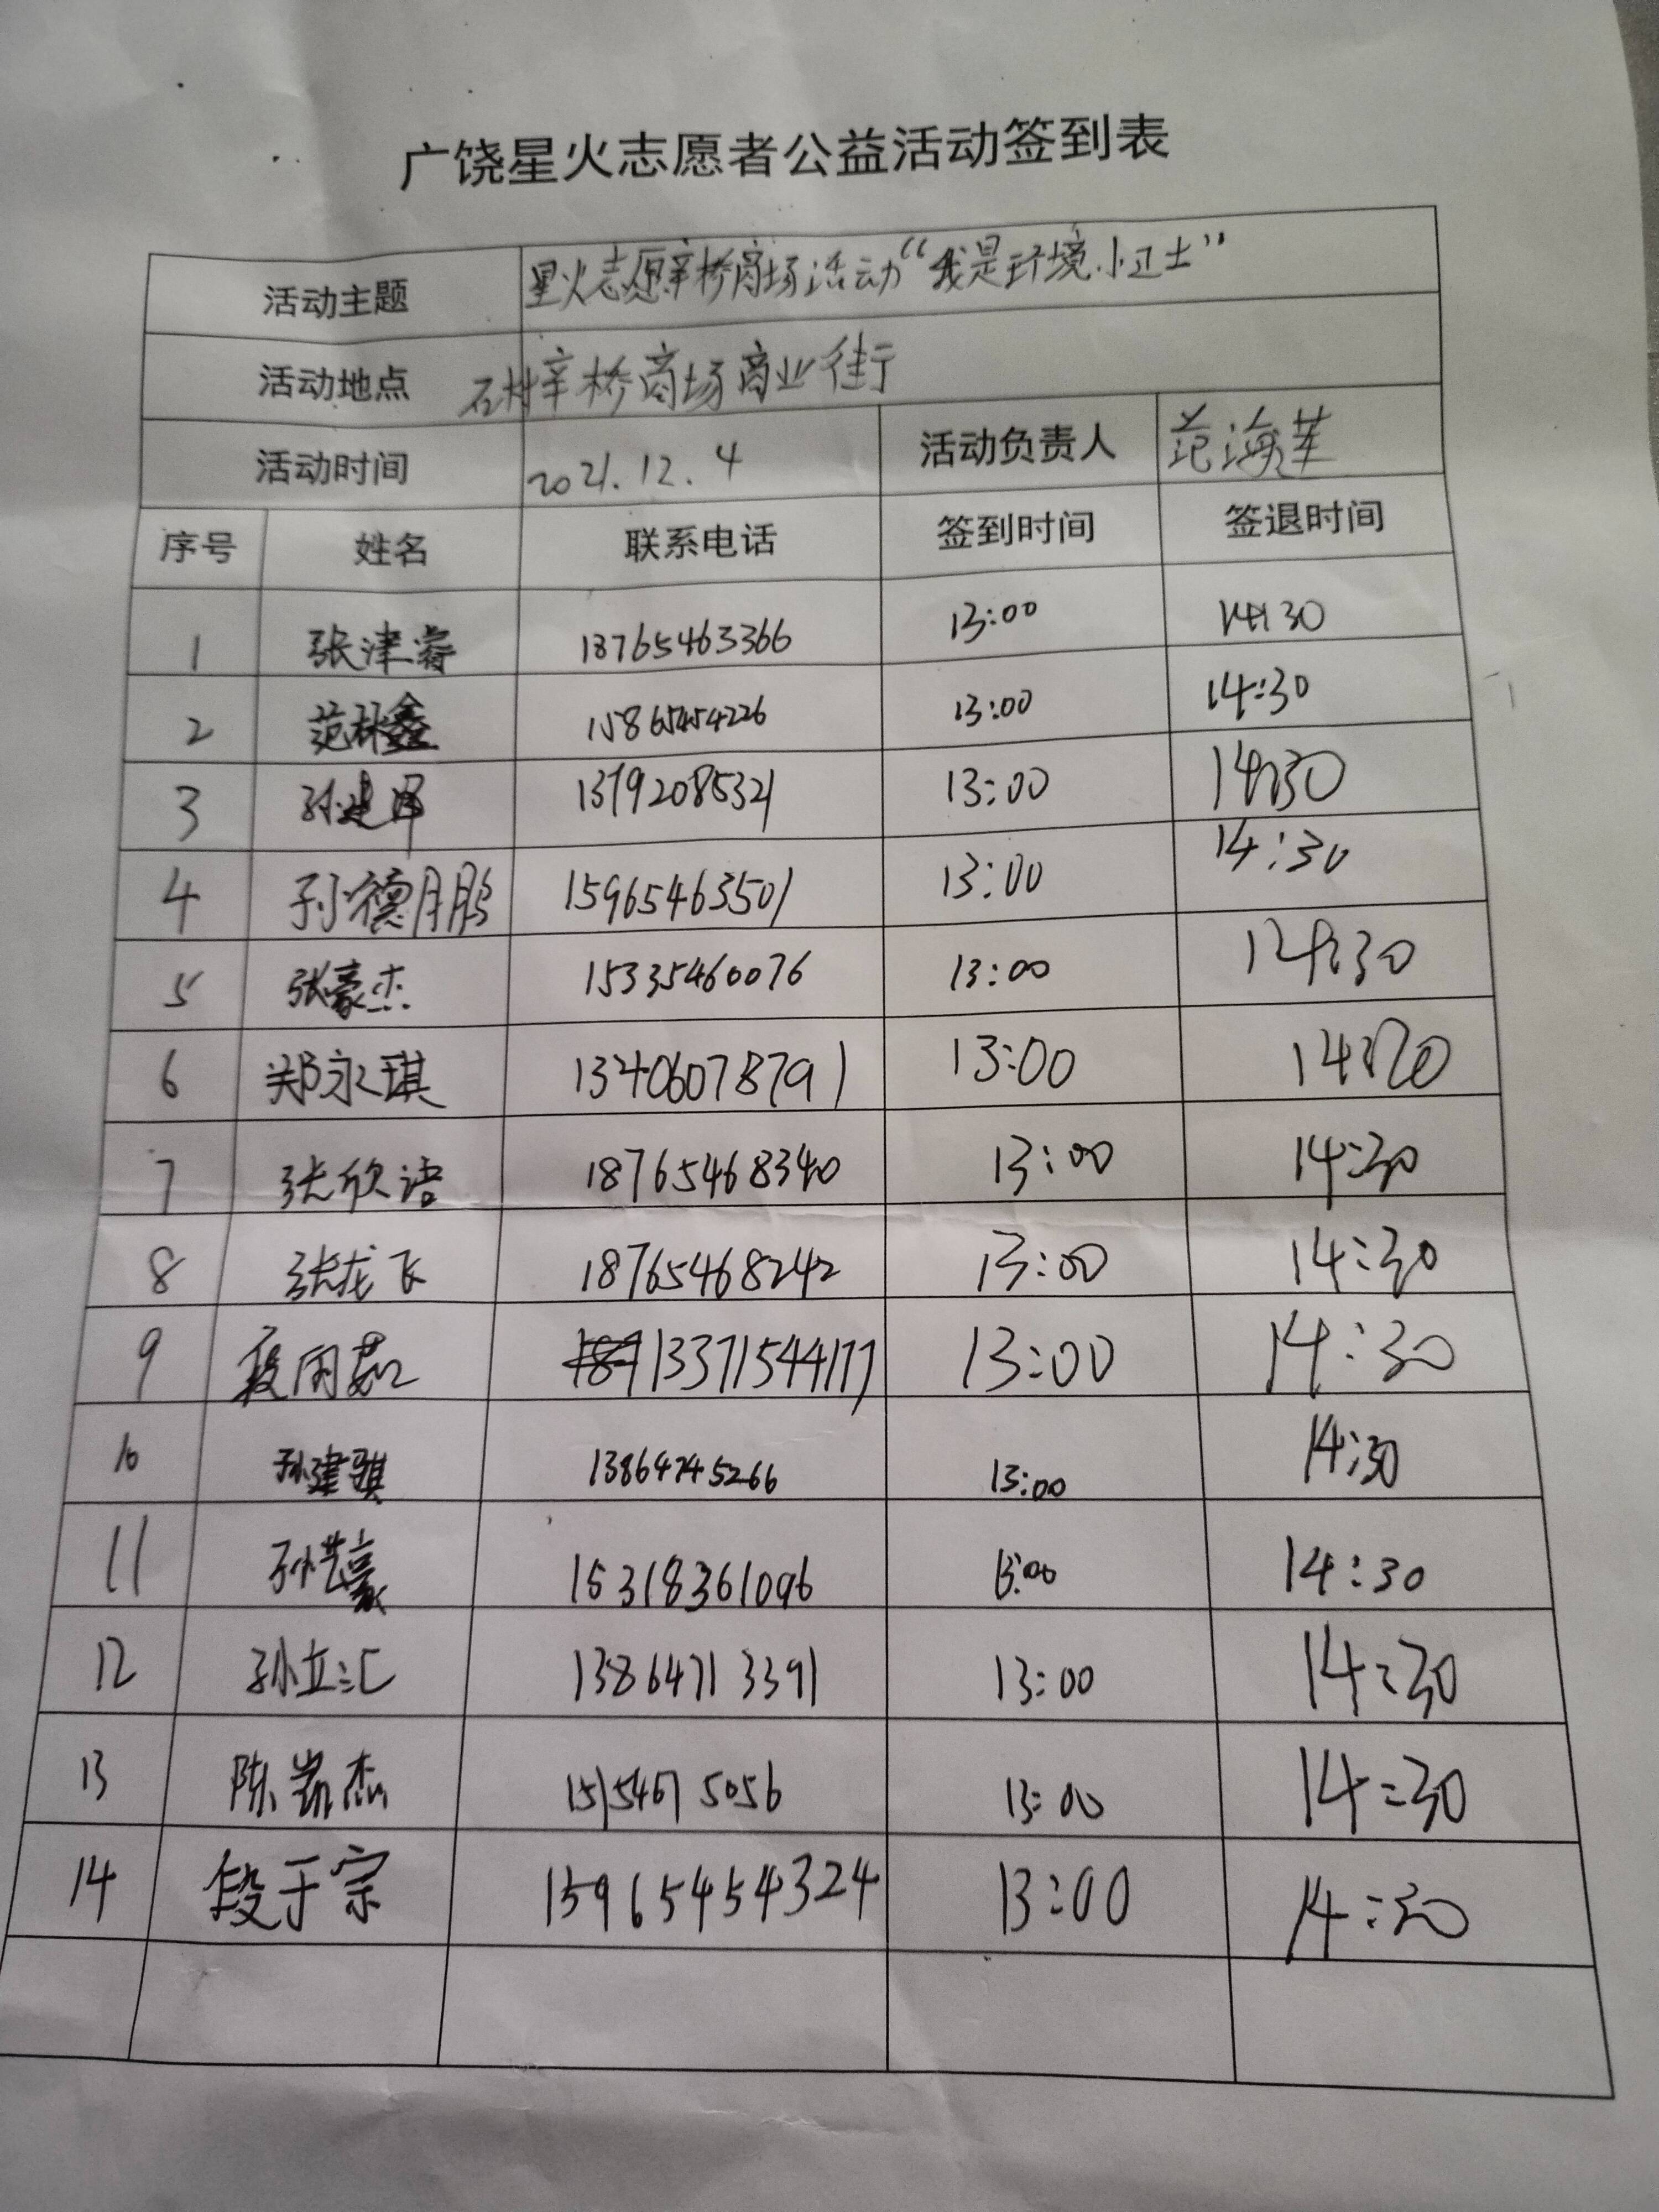 广饶星火志愿者公益活动签到表
活动主题 星火志愿辛桥商场活动“我是环境小卫士”
活动地点 石村辛桥商场商业街
活动时间 2021.12.4 活动负责人 范海莲
序号 姓名 联系电话 签到时间 签退时间
1 张津睿 18765463366 13:00 14:30
2 范林鑫 15865454226 13:00 14:30
3 孙建 13792085321 13:00 14:30
4 孙德鹏 15965463501 13:00 14:30
5 张豪杰 15335460076 13:00 14:30
6 郑永琪 13406078791 13:00
7 张欣语 18765468340 13:00 14:30
8 张龙飞 18765468242 13:00 14:30
9 13371544177 13:00 14:30
10 孙建骐 13864745266 13:00 14:30
11 孙艺豪 15318361096 13:00 14:30
12 孙立汇 13864713391 13:00 14:30
13 陈凯杰 15154675056 13:00 14:30
14 段于宗 15965454324 13:00 14:30